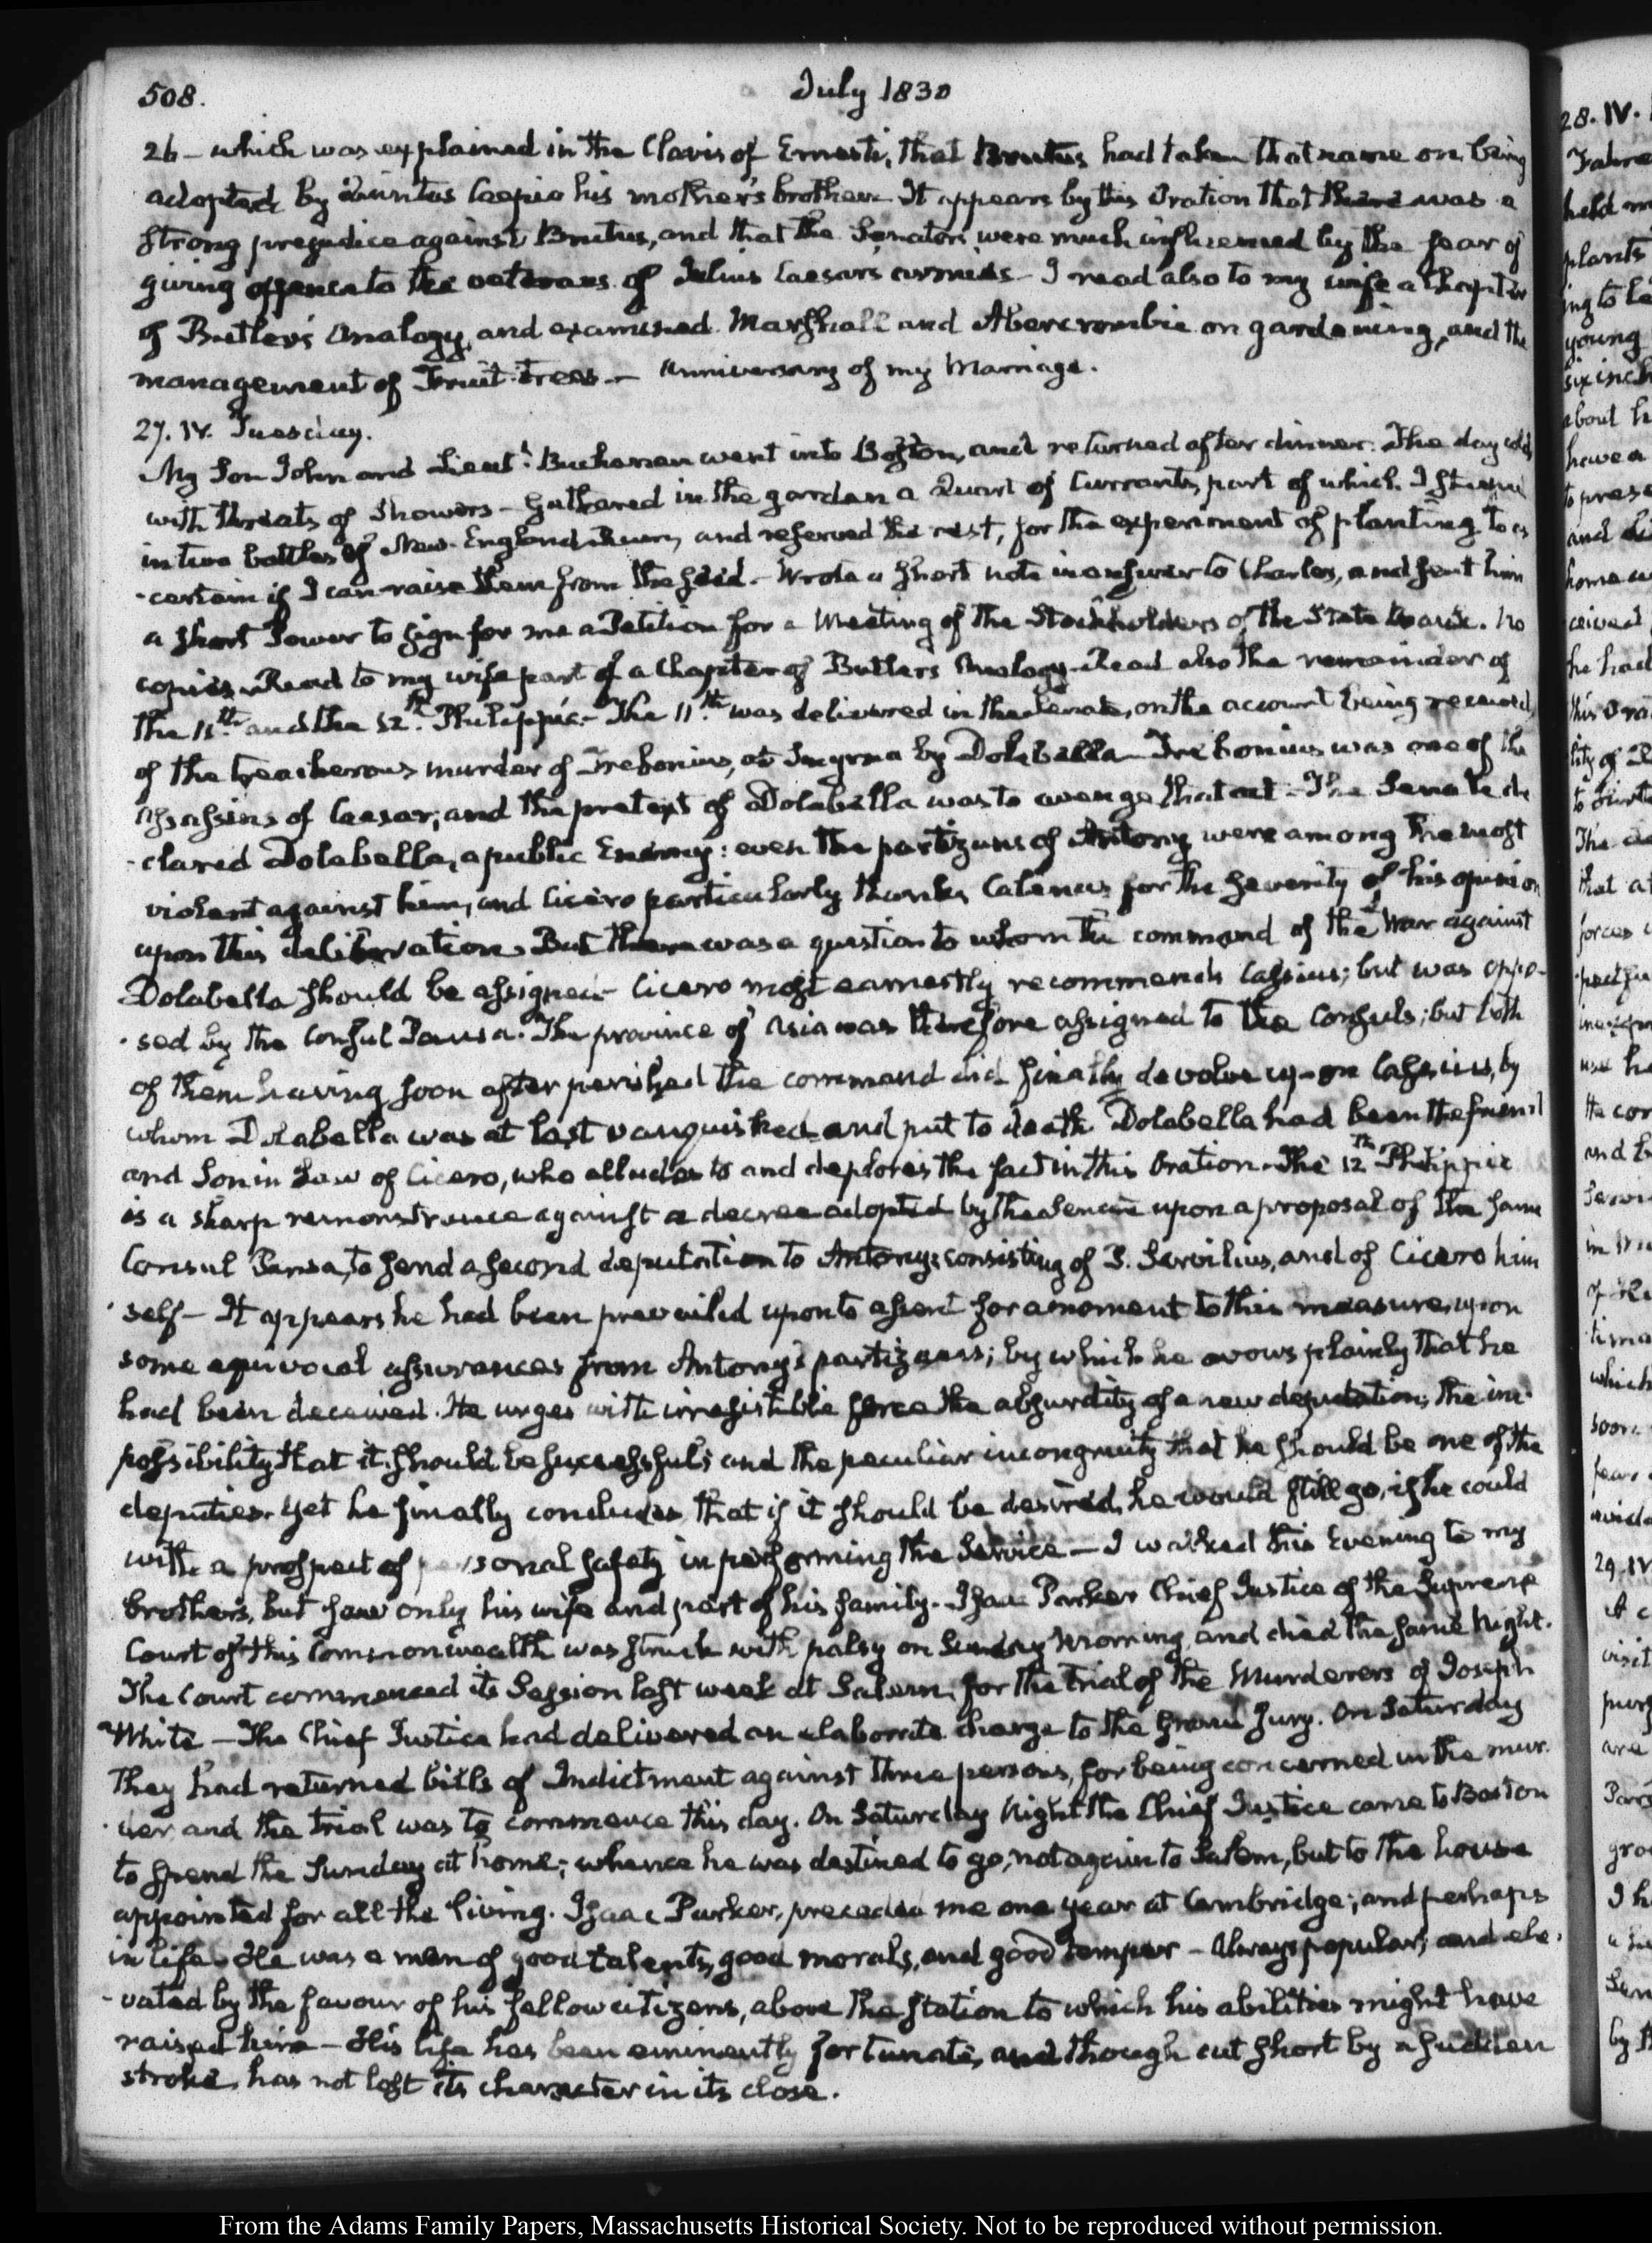 508.
July 1830
26 - which was explained in the Clavis of Ernesti, that Brutus had taken that name on being
adopted by Quintus Caepio his mother's brother. It appears by this Oration that there was a
strong prejudice against Brutus, and that the Senators were much influenced by the fear of
giving offence to the veterans of Julius Caesar's armies - I read also to my wife a Chapter
of Butler's Analogy, and examined Marshall and Abercrombie on gardening, and the
management of Fruit-trees - Anniversary of my Marriage.
27. IV. Tuesday.
My Son John and Lieutt. Buchanan went into Boston, and returned after dinner. The day cold
with threats of Showers - Gathered in the garden a Quart of Currants, part of which I
in two bottles of New-England Rum, and reserved the rest, for the experiment of planting to as
-certain if I can raise them from the seed. - Wrote a short note in answer to Charles, and sent him
a short Power to sign for me a Petition for a Meeting of the Stockholders of the State Bank. No
copies. Read to my wife part of a Chapter of Butlers Analogy. Read also the remainder of
the 11th. and the 12th. Philippic. - The 11th. was delivered in the Senate, on the account being received,
of the treacherous murder of Trebonius, at Smyrna by Dolabella - Trebonius was one of the
assassins of Caesar, and the pretext of Dolabella was to avenge that act - The Senate de
-clared Dolabella, a public Enemy: even the partizans of Antony were among the most
violent against him, and Cicero particularly thanks Calenus for the severity of his opinion
upon this deliberation. But there was a question to whom the command of the War against
Dolabella should be assigned - Cicero most earnestly recommends Cassius; but was oppo-
-sed by the Consul Pansa. The province of Asia was therefore assigned to the Consuls; but both
of them having soon after perished the command did finally devolve upon Cassius, by
whom Dolabella was at last vanquished and put to death. Dolabella had been the friend
and Son in Law of Cicero, who alludes to and deplores the fact in this Oration. The 12th Philippic
is a sharp remonstrance against a decree adopted by the Senate upon a proposal of the same
Consul Pansa, to send a second deputation to Antony; consisting of P. Servilius, and of Cicero him
-self - It appears he had been prevailed upon to assent for a moment to this measure, upon
some equivocal assurances from Antony's partizans; by which he avows plainly that he
had been deceived. He urges with irresistible force the absurdity of a new deputation; the im-
possibility that it should be successful; and the peculiar incongruity that he should be one of the
deputies. Yet he finally concludes that if it should be desired, he would still go, if he could
with a prospect of personal safety in performing the Service - I walked this Evening to my
brother's, but saw only his wife and part of his family. Isaac Parker Chief Justice of the Supreme
Court of this Commonwealth was struck with palsy on Sunday Morning, and died the same Night.
The Court commenced its Session last week at Salem, for the trial of the Murderers of Joseph
White - The Chief Justice had delivered an elaborate charge to the Grand Jury. On Saturday
they had returned bills of Indictment against three persons, for being concerned in the mur-
-der, and the trial was to commence this day. On Saturday Night the Chief Justice came to Boston
to spend the Sunday at home; whence he was destined to go, not again to Salem, but to the house
appointed for all the living. Isaac Parker, preceded me one year at Cambridge; and perhaps
in life. He was a man of good talents, good morals, and good temper - Always popular; and ele-
-vated by the favour of his fellow citizens, above the station to which his abilities might have
raised him - His life has been eminently fortunate, and though cut short by a sudden
stroke, has not lost its character in its close.
From the Adams Family Papers, Massachusetts Historical Society. Not to be reproduced without permission.